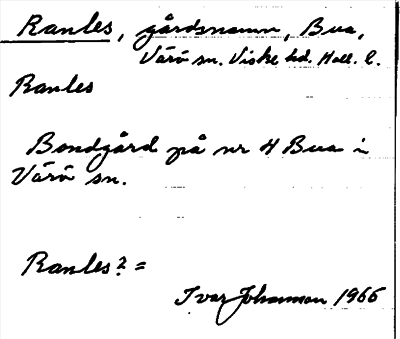 Ranles, gårdsnamn, Bua,
Värö sn. Viske hd. Hall. l.
Ranles
Bondgård på nr 4 Bua i
Värö sn.
Ranles? =
Ivar Johansson 1966